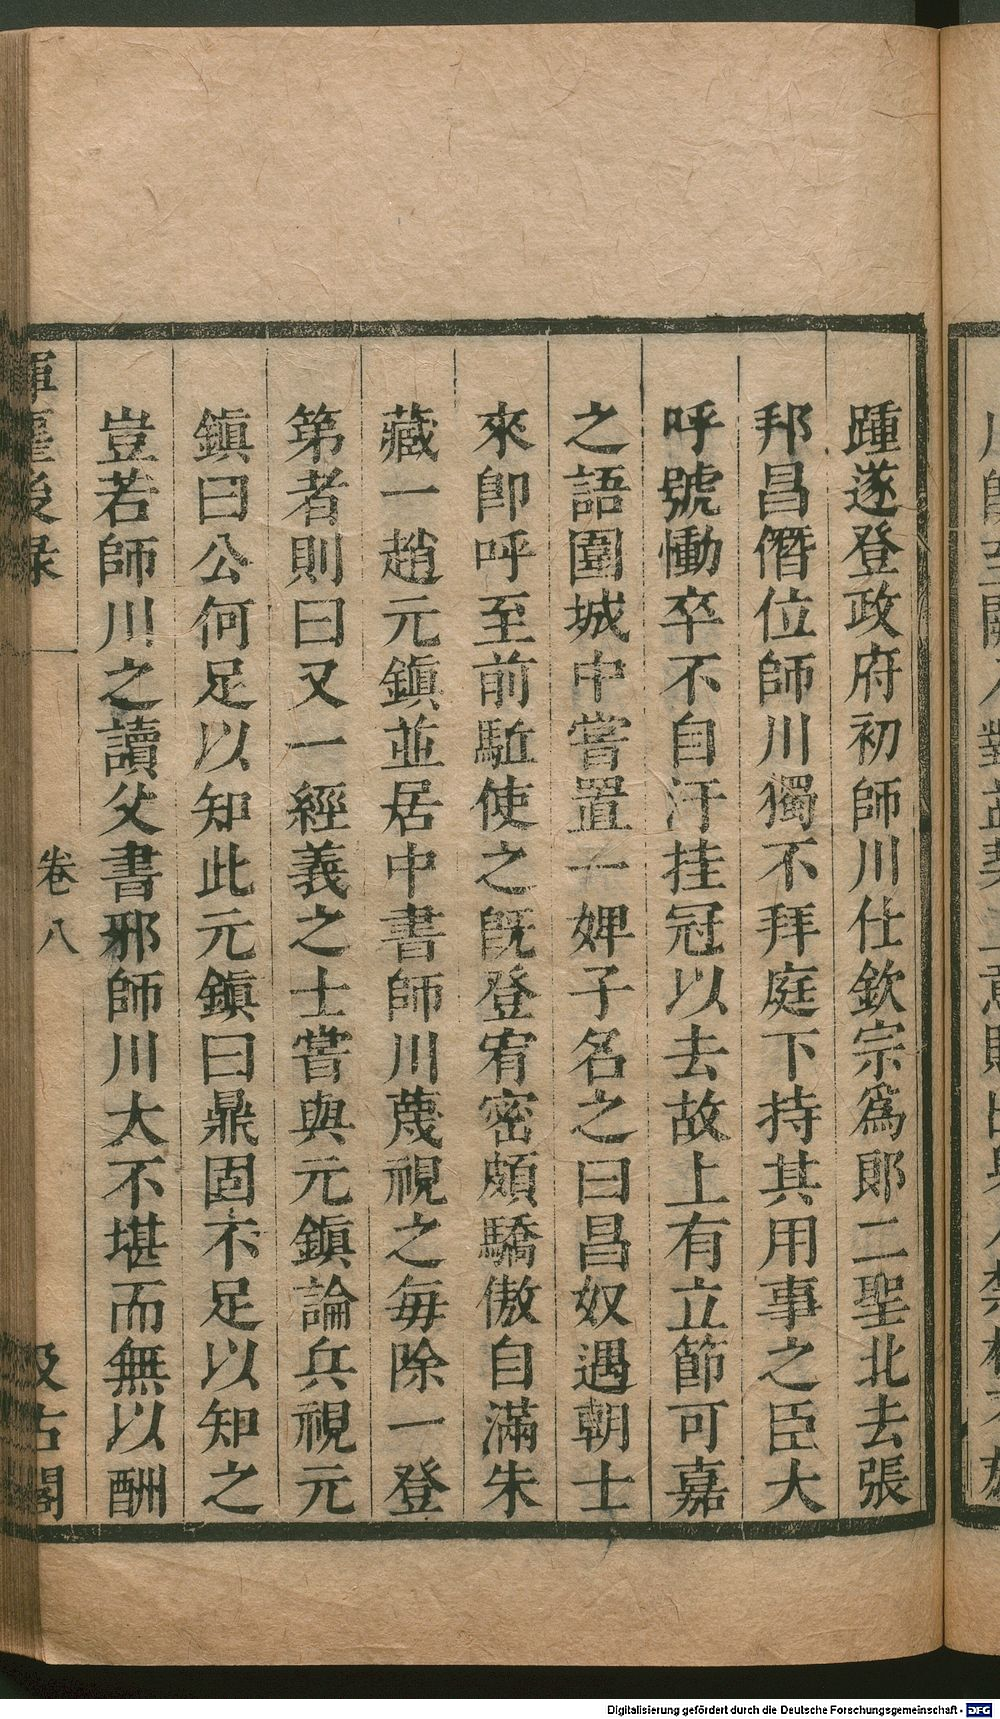 踵遂登政府初師川仕欽宗爲郞二聖北去張
邦昌僭位師川獨不拜庭下持其用事之臣大
呼號慟卒不自汙挂冠以去故上有立節可嘉
之語圍城中嘗置一婢子名之曰昌奴遇朝士
來卽呼至前駈使之旣登宥密頗驕傲自滿朱
藏一趙元鎭並居中書師川蔑視之每除一登
第者則曰又一經義之士嘗與元鎭論兵視元
鎭曰公何足以知此元鎭曰鼎固不足以知之
豈若師川之讀父書邪師川大不堪而無以酬
揮麈後录 卷八 汲古閣
Digitalisierung gefördert durch die Deutsche Forschungsgemeinschaft - DFG